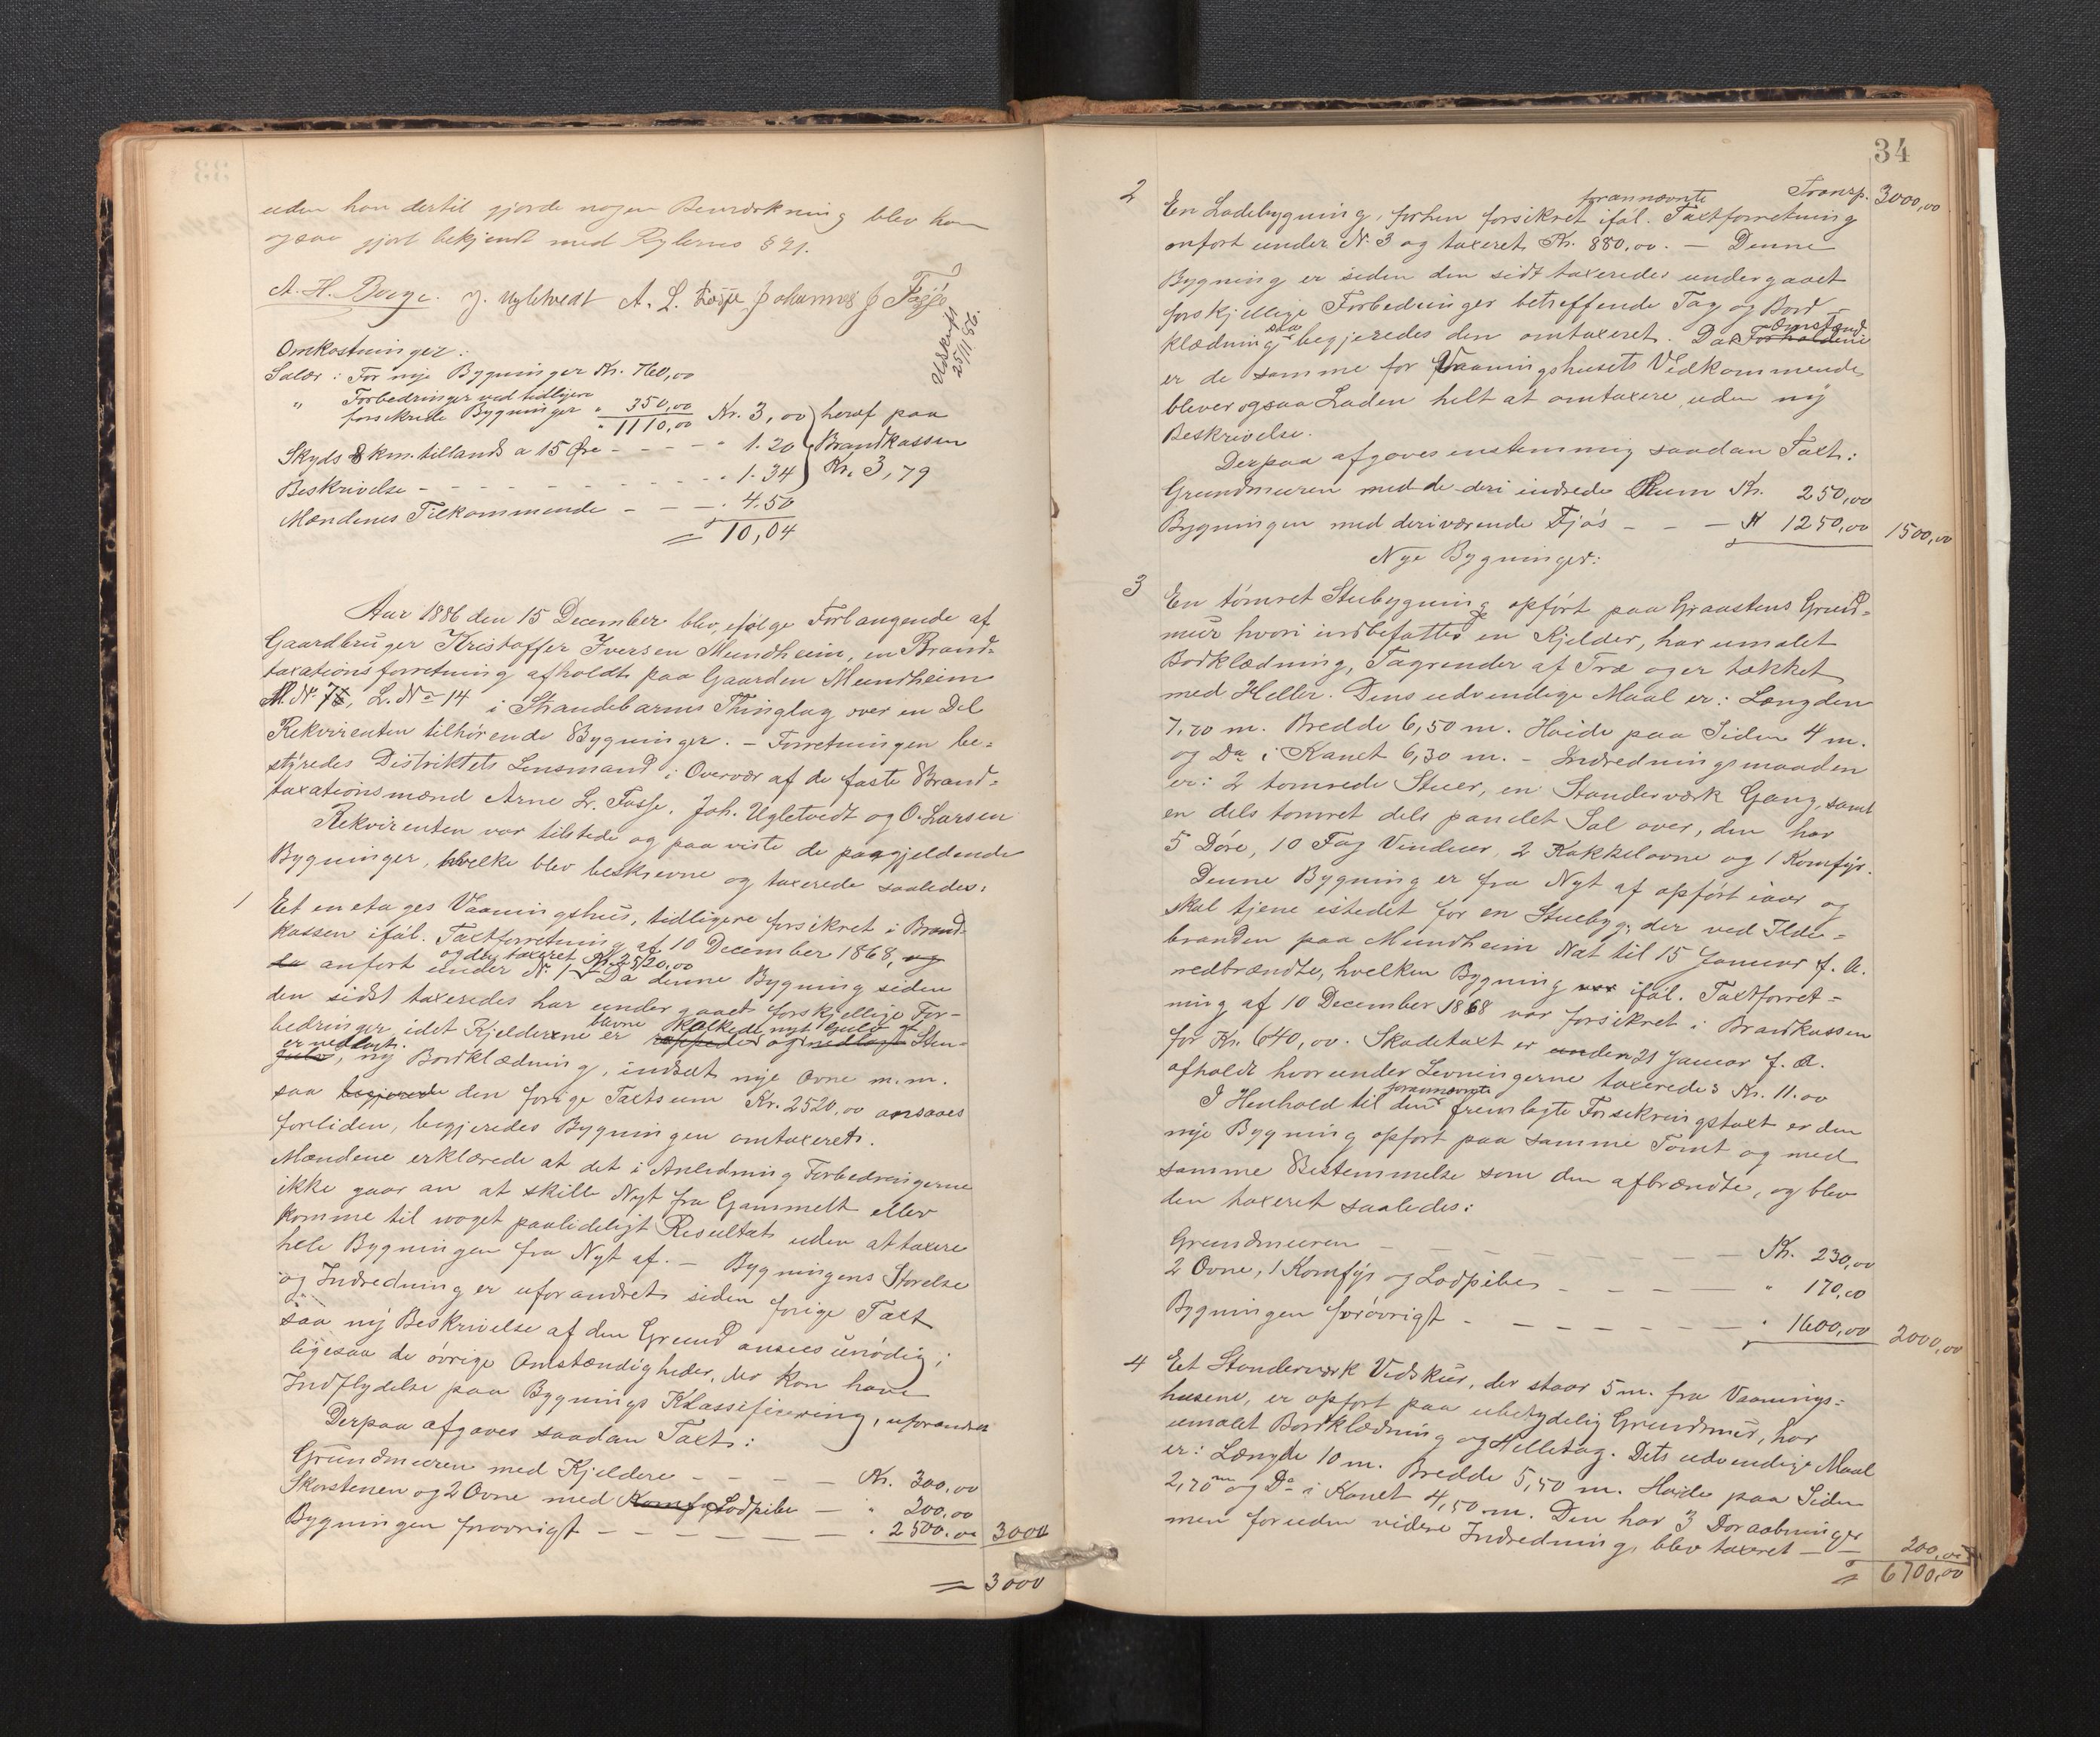 uden han dertil gjorde nogen Bemærkning blev han
ogsaa gjort bekjendt med Rylernes § 21.
A. H. Berge. J. Ugletvedt A. L. Fosse Johannes J Fosse
Udskrift
25/11 86.
Omkostninger:
Salær: For nye Bygninger Kr. 760,00
" Forbedringer ved tidligere
forsikrede Bygninger " 350,00
" 1110,00 Kr. 3,00 heraf paa
Skyds 8 km. tillands a 15 Øre - - - - " 1.20 Brandkassen
Beskrivelse - - - - - - - - " 1.34 Kr. 3,79
Mændenes Tilkommende - - - . 4.50
= 10,04
Aar 1886 den 15 December blev, ifølge Forlangende af
Gaardbruger Kristoffer Iversen Mundheim, en Brand-
taxationsforretning afholdt paa Gaarden Mundheim
M. N. 7, L. No 14 i Strandebarms Thinglag over en Del
Rekvirenten tilhørende Bygninger. - Forretningen be-
styredes Distriktets Lensmand i Overvær af de faste Brand-
taxationsmænd Arne L. Fosse, Joh. Ugletvedt og O. Larsen
Rekvirenten var tilstede og paaviste de paagjeldende
Bygninger, hvilke blev beskrevne og taxerede saaledes:
1 Eet enetages Vaaningshus, tidligere forsikret i Brand-
kassen iføl. Taxtforretning af 10 December 1868, og
da anført under N. 1 og der taxeret Kr. 2520,00 - Da denne Bygning siden
den sidst taxeredes har undergaaet forskjellige For-
bedringer, idet Kjelderne er blevne kalkede nyt Gulv af Sten-
er nedlagt, ny Bordklædning, indsat nye Ovne m. m.
saa begjerede den forige Taxtsum Kr. 2520,00 ansaaes
forliden, begjeredes Bygningen omtaxeret.
Mændene erklærede at det i Anledning Forbedringerne
ikke gaar an at skille Nyt fra Gammelt eller
komme til noget paalideligt Resultat uden at taxere
hele Bygningen fra Nyt af. - Bygningens Størelse
og Indredning er uforandret siden forige Taxt
saa ny Beskrivelse af den Grund ansees unødig;
ligesaa de øvrige Omstændigheder, der kan have
Indflydelse paa Bygnings Klassificering, uforandret
Derpaa afgaves saadan Taxt:
Grundmuren med Kjeldere - - - - Kr. 300,00
Skorstenen og 2 Ovne med Komfy Lodpibe - " 200,00
Bygningen forøvrigt - - - - - - . 2500.00 3000
= 3000
34
Transp. 3000,00
2 En Ladebygning, forhen forsikret iføl. forannævnte Taxtforretning
anført under N. 3 og taxeret Kr. 880,00. - Denne
Bygning er siden den sidst taxeredes undergaaet
forskjellige Forbedringer betreffende Tag og Bord-
klædning saa begjeredes den omtaxeret. Da Forholdene Omstænd.
er de samme for Vaaningshusets Vedkommende
blever ogsaa Laden helt at omtaxere uden ny
Beskrivelse.
Derpaa afgaves enstemmig saadan Taxt:
Grundmuren med de deri indrede Rum Kr. 250,00
Bygningen med deriværende Fjøs - - - " 1250,00 1500,00
Nye Bygninger:
3 En tømret Stubygning opført paa Graastens Grund-
mur hvori indbefattes en Kjelder, har umalet
Bordklædning, Tagrender af Træ og er tækket
med Heller. Dens udvendige Maal er: Længden
7,70 m. Bredde 6,50 m. Høide paa Siden 4 m.
og Do i Kanet 6,30 m. - Indredningsmaaden
er: 2 tømrede Stuer, en Standerværk Gang, samt
en dels tømret dels panelet Sal over, den har
5 Døre, 10 Fag Vinduer, 2 Kakkelovne og 1 Komfyr.
Denne Bygning er fra Nyt af opført iaar og
skal tjene istedet for en Stuebyg, der ved Ilde-
branden paa Mundheim Nat til 15 Januar f. A.
nedbrændte, hvelken Bygning var iføl. Taxtforret-
ning af 10 December 1868 var forsikret i Brandkassen
for Kr. 640,00. Skadetaxt er under 21 Januar f. A.
afholdt hvorunder Levningerne taxeredes Kr. 11.00
I Henhold til den forannævnte fremlagte Forsikringstaxt er den
nye Bygning opført paa samme Tomt og med
samme Bestemmelse som den afbrændte, og blev
den taxeret saaledes:
Grundmuren - - - - - - - Kr. 230,00
2 Ovne, 1 Komfyr og Lodpibe - - - - " 170,00
Bygningen forøvrigt - - - - - - " 1600,00 2000,00
4 Eet Standerværk Vedskur, der staar 5 m. fra Vaanings-
husene, er opført paa ubetydelig Grundmur, har
umalet Bordklædning og Helletag. Dets udvendige Maal
er: Længde 10 m. Bredde 5,50 m. Høide paa Siden
2,70 m og Do i Kanet 4,50 m. Den har 3 Døraabninger
men foruden videre Indredning, blev taxeret - 200,00
= 6700,00